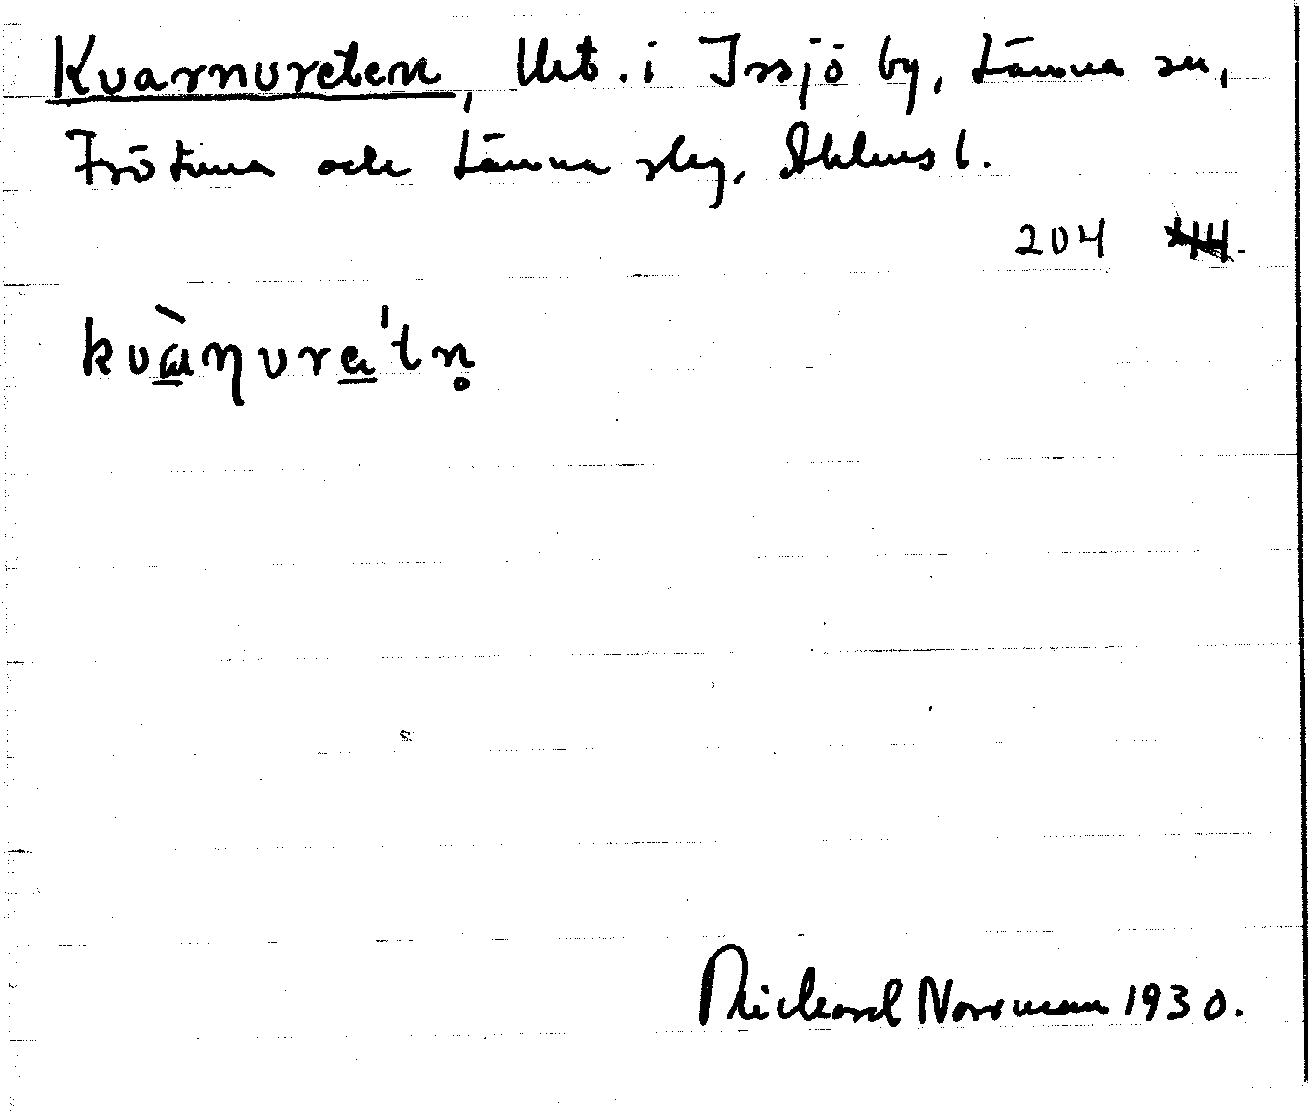 Kvarnvreten, Urt. i Issjö by, Länna sn,
Frötuna och Länna skg, Sthlms l.
204
kvàɳvrα'tn̥
Rickard Norrman 1930.